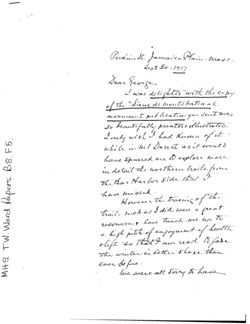 Perkins St. Jamaica Plain. Mass.
Sept 30 - 1917
Dear George.
I was delighted with the copy
of the "Sieur de monts national
monument publication you sent me,
so beautifully printed & illustrated.
I only wish I had known of it
while in Mt Desert as it would
have spurred me to explore more
in detail the northern trails from
the Bar Harbor side that I
have missed.
However the tracing of the
trails such as I did were a great
resource & have tuned me up to
a high pitch of enjoyment of health
& life so that I am ready to face
the winter in better shape than
ever before.
We were all sorry to leave
MHS TW Ward Papers. B8.F5